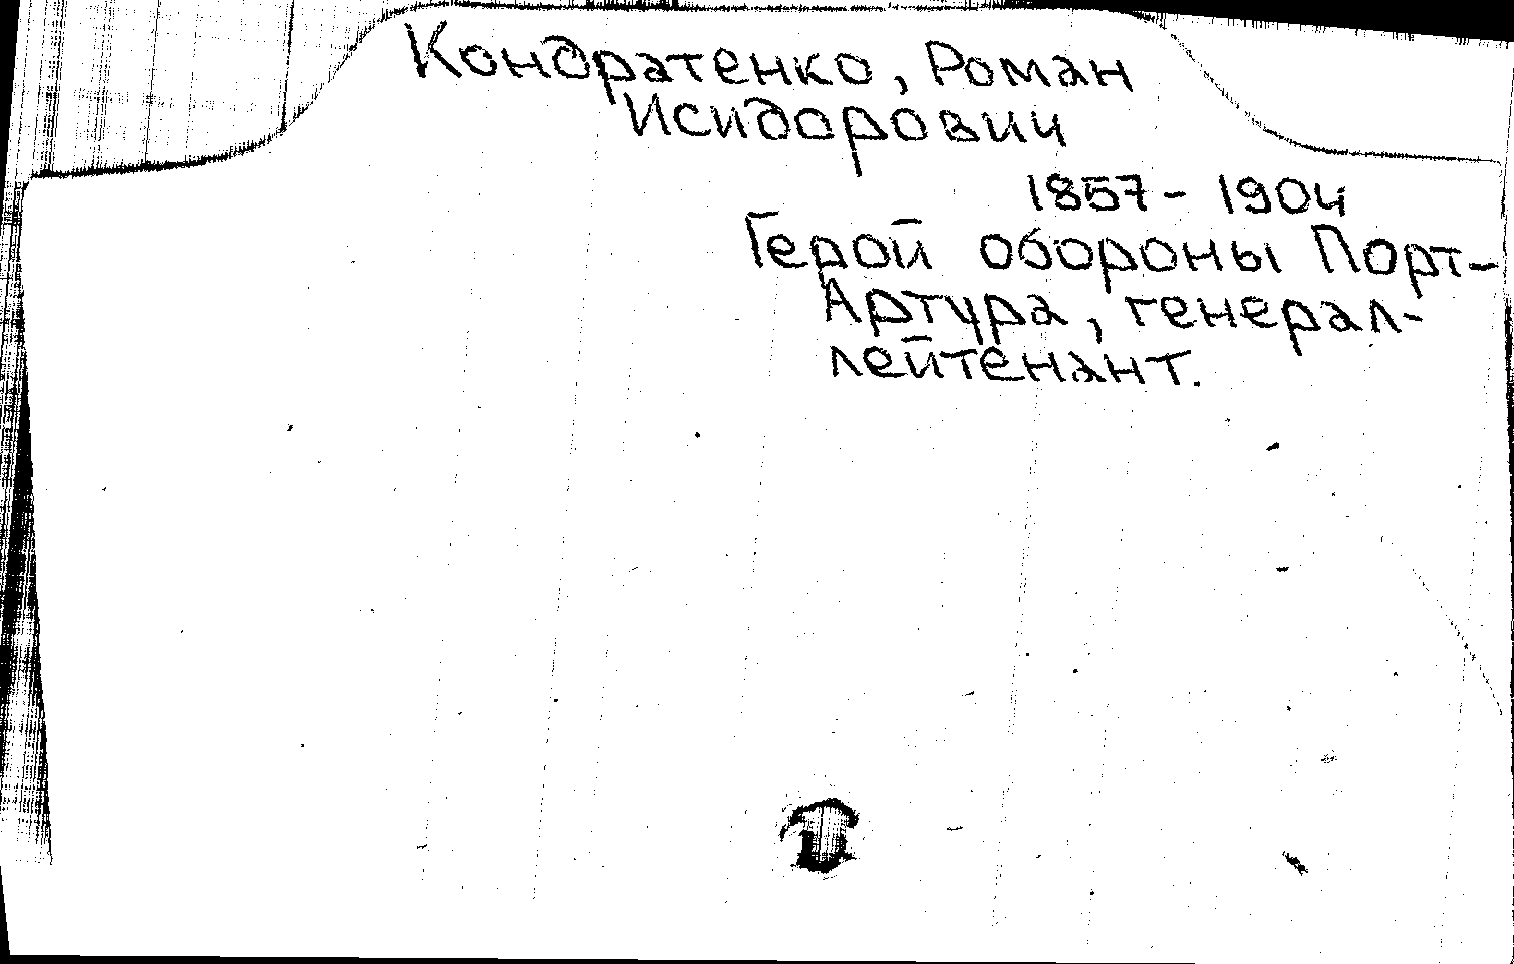 Кондратенко, Роман
Исидорович
1857 - 1904
Герой обороны Порт-
Артура, генерал-
лейтенант.